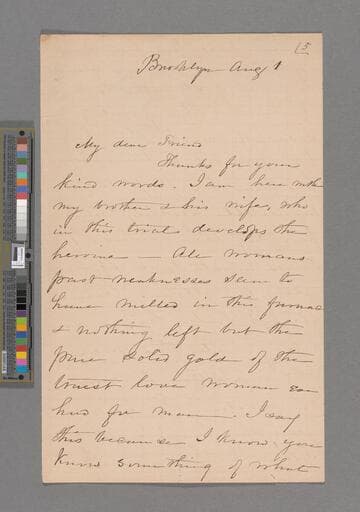 5
Brooklyn Aug 1
My dear Friend
Thanks for your
kind words. I am here with
my brother & his wife, who
in this trial develops the
heroine — All womans
past weaknesses seem to
have melted in this furnace
& nothing left but the
pure solid gold of the
truest love woman can
have for man. I say
this because I know you
know something of what